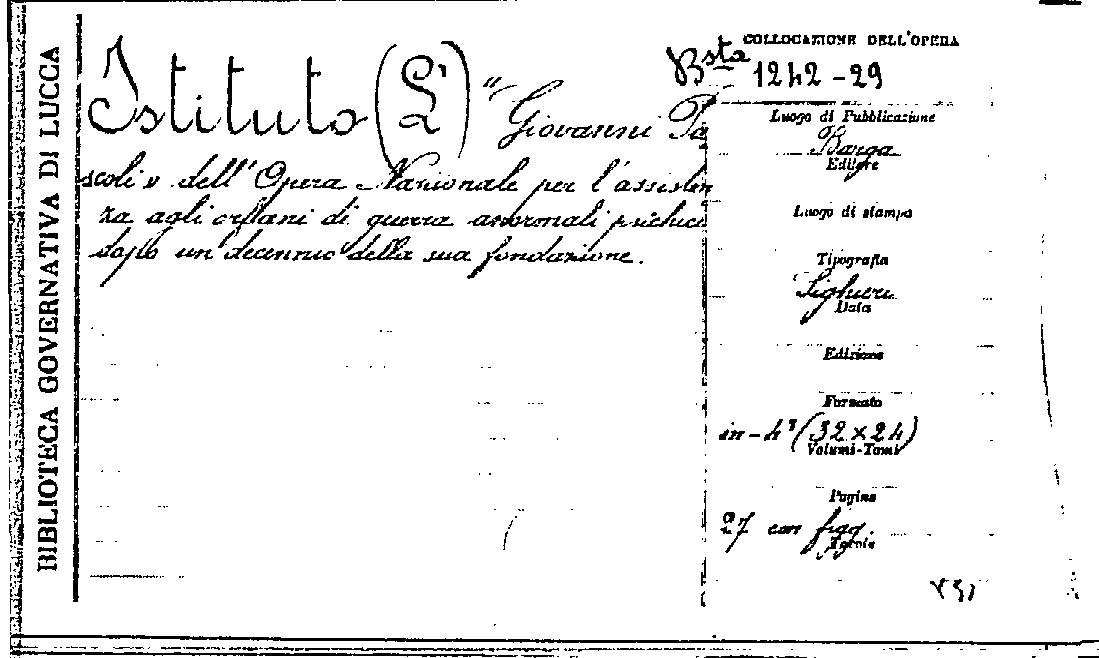 BIBLIOTECA GOVERNATIVA DI LUCCA
Istituto (L') "Giovanni Pa
scoli" dell'Opera Nazionale per l'assisten
za agli orfani di guerra anormali psichici
dopo un decennio della sua fondazione.
COLLOCAZIONE DELL'OPERA
Bsta 1242-29
Luogo di Pubblicazione
Barga
Editore
Luogo di stampa
Tipografia
Sighieri
Data
Edizione
Formato
in-4° (32×24)
Volumi-Tomi
Pagine
27 con figg.
Tavole